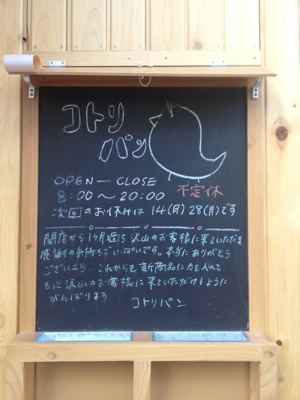 コトリ
パン
OPEN — CLOSE
8:00 〜 20:00
不定休
次回のお休みは 14(月) 28(月)です
開店から1ヶ月近く沢山のお客様に来ていただき
感謝の気持ちでいっぱいです。本当にありがとう
ございます。これからも新商品に力を入れて
もっと沢山のお客様に来ていただけるように
がんばります
コトリパン